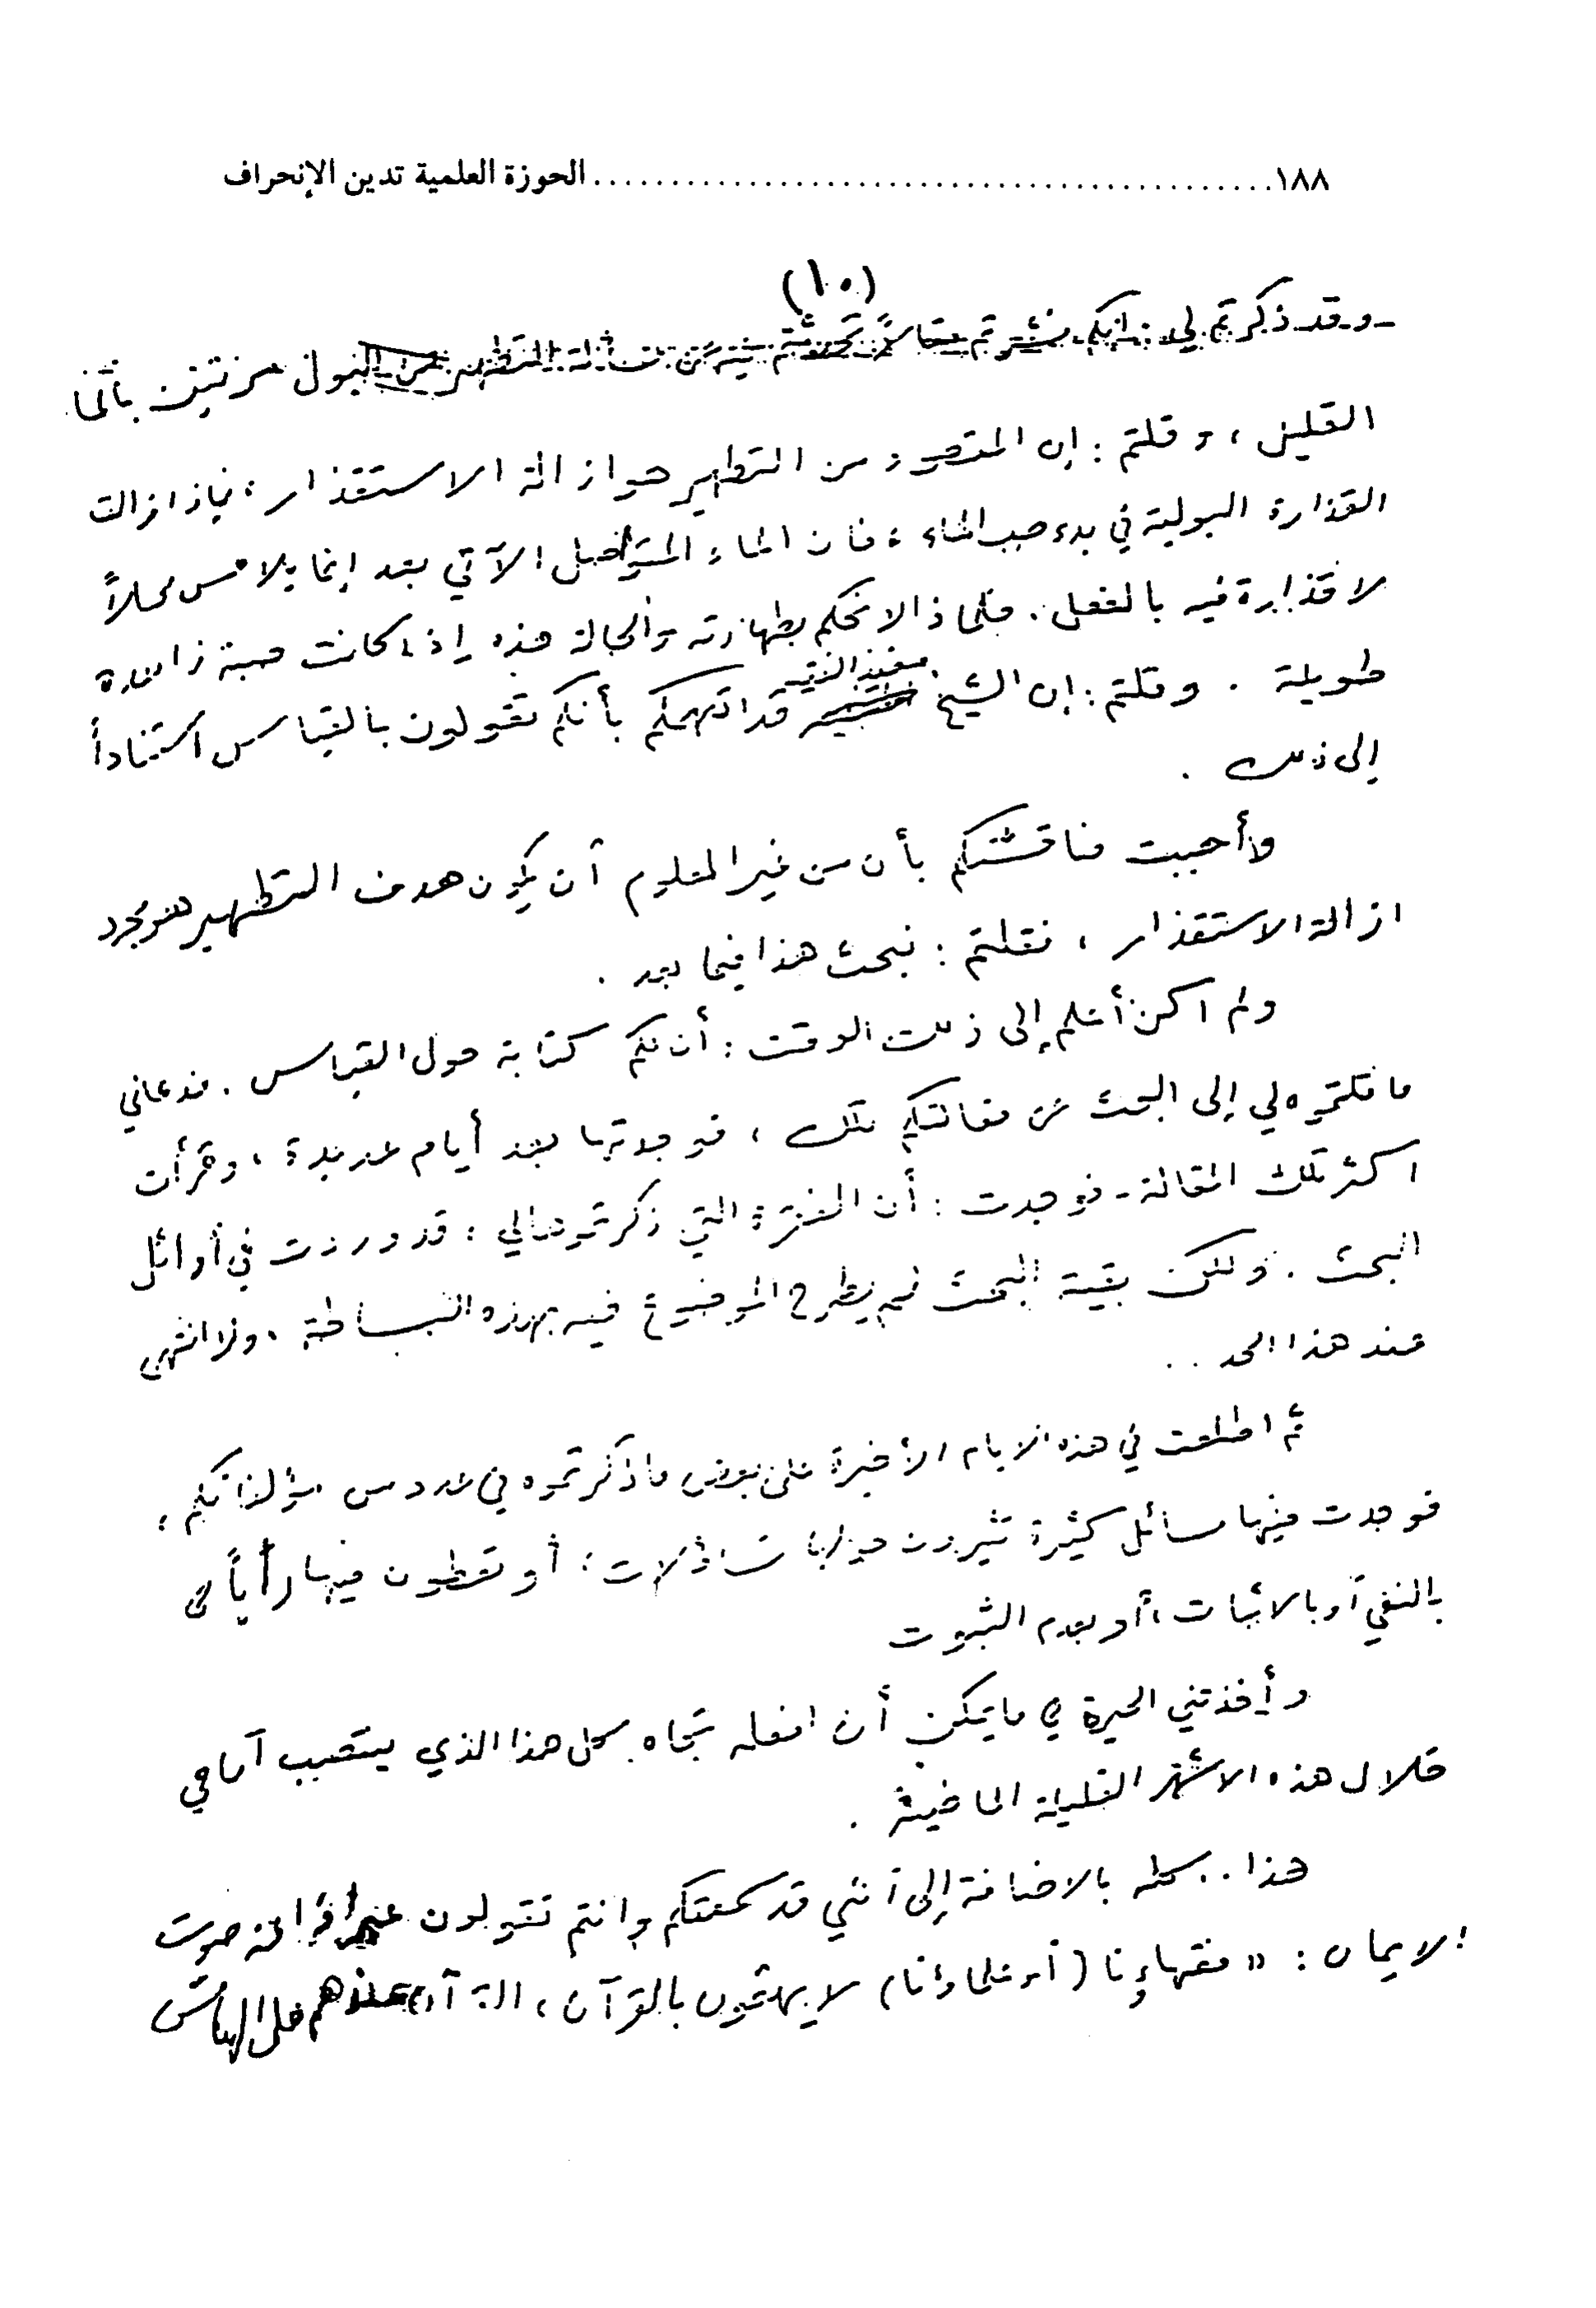 ١٨٨............................................الحوزة العلمية تدين الإنحراف
(١٠)
وقد ذكرتم لي: انكم نشرتم مقالاً تحدثتم فيه عن مسألة التطهير من البول مرتين بالماء
القليل، وقلتم: إن المقصود من التطهير هو ازالة الاستقذار، فإذا زالت
القذارة البولية في بدء صب الماء، فان الماء المتواصل الآتي بعد إنما يلامس محلاً
لا قذارة فيه بالفعل. فلماذا لا نحكم بطهارته والحالة هذه إذا كانت صبة زائدة
طويلة. وقلتم: إن الشيخ مفيد الفقيه قد اتهمكم بأنكم تقولون بالقياس استناداً
إلى ذلك.
وأحببت مناقشتكم بأن من غير المعلوم أن يكون هدف التطهير هو مجرد
ازالة الاستقذار، فقلتم: نبحث هذا فيما بعد.
ولم اكن أعلم إلى ذلك الوقت: أن لكم كتابة حول القياس. فدعاني
ما قلتموه لي إلى البحث عن مقالتكم تلك، فوجدتها بعد أيام عديدة، وقرأت
اكثر تلك المقالة - فوجدت: أن الفقرة التي ذكرتموها لي: قد وردت في أوائل
البحث. ولكن بقية البحث لم يطرح الموضوع فيه بهذه البساطة، ولا انتهى
عند هذا الحد..
ثم اطلعت في هذه الايام الأخيرة على بعض ما ذكرتموه في عدد من مؤلفاتكم،
فوجدت فيها مسائل كثيرة تثيرون حولها تساؤلات، أو تعطون فيها رأياً
بالنفي أو بالاثبات، أو بعدم الثبوت
وأخذتني الحيرة في ما يمكن أن افعله تجاه كل هذا الذي ينتصب أمامي
خلال هذه الاشهر القليلة الماضية.
هذا.. كله بالاضافة إلى أنني قد سمعتكم وانتم تقولون عبر اذاعة صوت
الايمان: «فقهاؤنا (أو علماؤنا) لا يهتمون بالقرآن، القرآن عندهم على الهامش